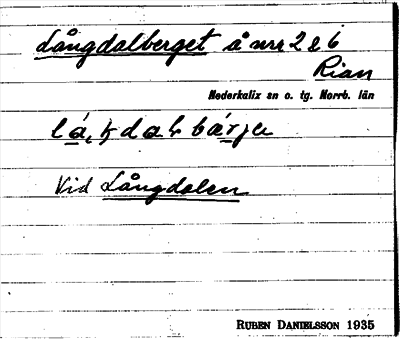 Långdalberget å nrr 2 & 6
Rian
Nederkalix sn o. tg. Norrb. län
Vid Långdalen
RUBEN DANIELSSON 1935